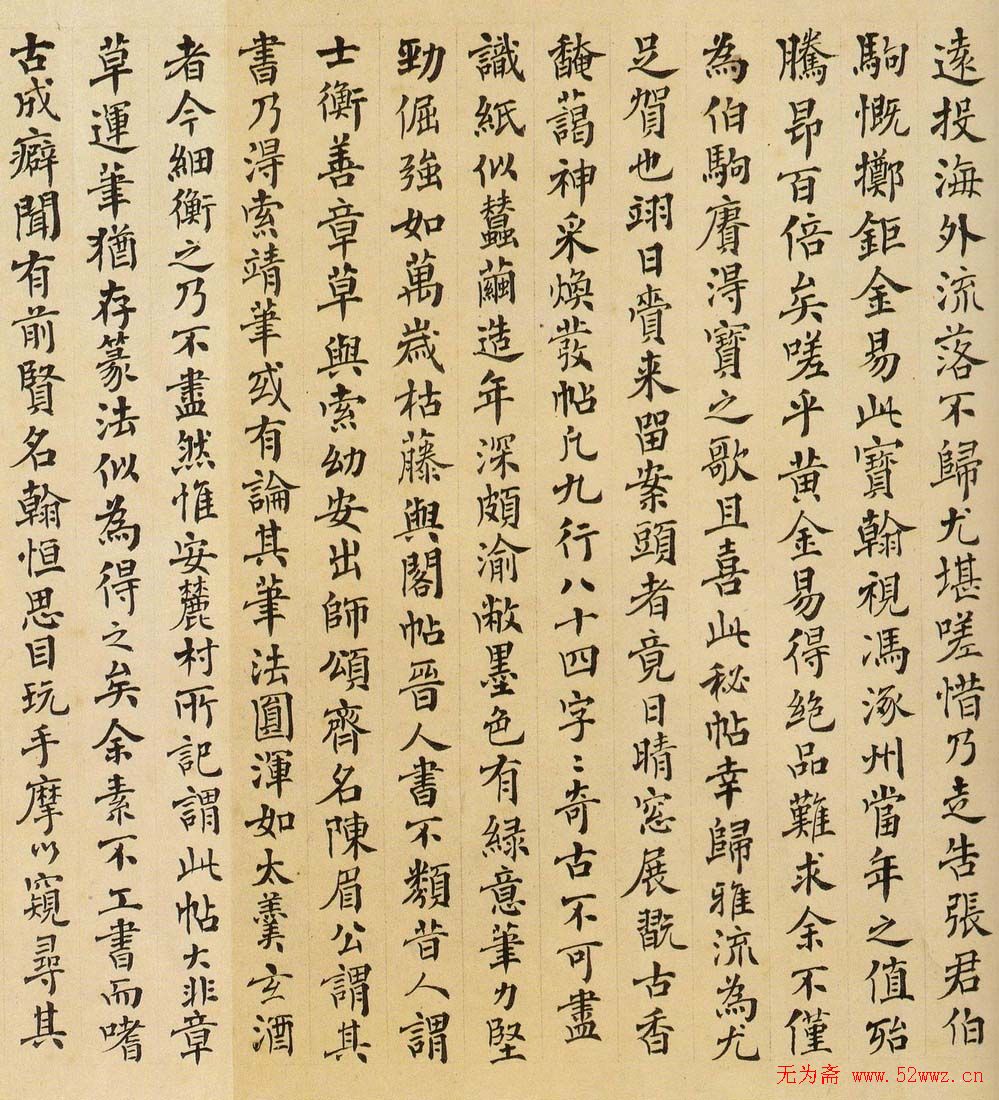 遠投海外流落不歸尤堪嗟惜乃走告張君伯
駒慨擲鉅金易此寶翰視馮涿州當年之值殆
騰昂百倍矣嗟乎黃金易得絕品難求余不僅
為伯駒賡得寶之歌且喜此秘帖幸歸雅流為尤
足賀也翊日賫来留案頭者竟日晴窓展翫古香
馣藹神采煥發帖凡九行八十四字〻奇古不可盡
識紙似蠶繭造年深頗渝敝墨色有緑意筆力堅
勁倔強如萬歲枯藤與閣帖晉人書不類昔人謂
士衡善章草與索幼安出師頌齊名陳眉公謂其
書乃得索靖筆或有論其筆法圓渾如太羹玄酒
者今細衡之乃不盡然惟安麓村所記謂此帖大非章
草運筆猶存篆法似為得之矣余素不工書而嗜
古成癖聞有前賢名翰恒思目玩手摩以窺尋其
无为斋 www.52wwz.cn